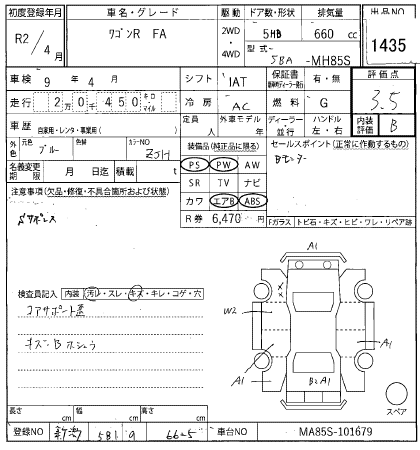 初度登録年月
車名・グレード
駆動
ドア数・形状
排気量
出品NO
R2/4月
ワゴンR FA
2WD・4WD
5HB
660 cc
1435
型式
5BA-MH85S
車検
9年4月
シフト
IAT
保証書
有・無
評価点
走行
2万0千450
キロ・マイル
冷房
AC
燃料
G
3.5
車歴
自家用・レンタ・事業用( )
定員
人
外車モデル
年
ディーラー・並行
ハンドル
左・右
内装評価
B
外色
元色
ブルー
色替
カラーNO
ZJH
装備品(純正品に限る)
セールスポイント(正常に作動するもの)
名義変更期限
月 日迄
積載
t
PS
PW
AW
Bモニター
注意事項(欠品・修復・不具合箇所および状態)
SR
TV
ナビ
カワ
エアB
ABS
R券
6,470
円
Fガラス
トビ石・キズ・ヒビ・ワレ・リペア跡
検査員記入
内装
汚レ・スレ・キズ・キレ・コゲ・穴
コアサポート歪
キズコB ホシュウ
A1
W2
A1
A1
B2A1
スペア
長さ
cm
幅
cm
高さ
cm
登録NO
581
9
6625
車台NO
MA85S-101679